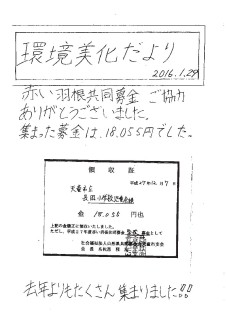 環境美化だより
2016.1.29
赤い羽根共同募金 ご協力
ありがとうございました。
集まった募金は、18,055円でした。
領収証
平成27年12月7日
天童市立
長岡小学校児童会様
金 18,055 円也
上記の金額正に領収いたしました。
ただし、平成27年度赤い羽根共同募金 募金として
去年よりもたくさん集まりました!!